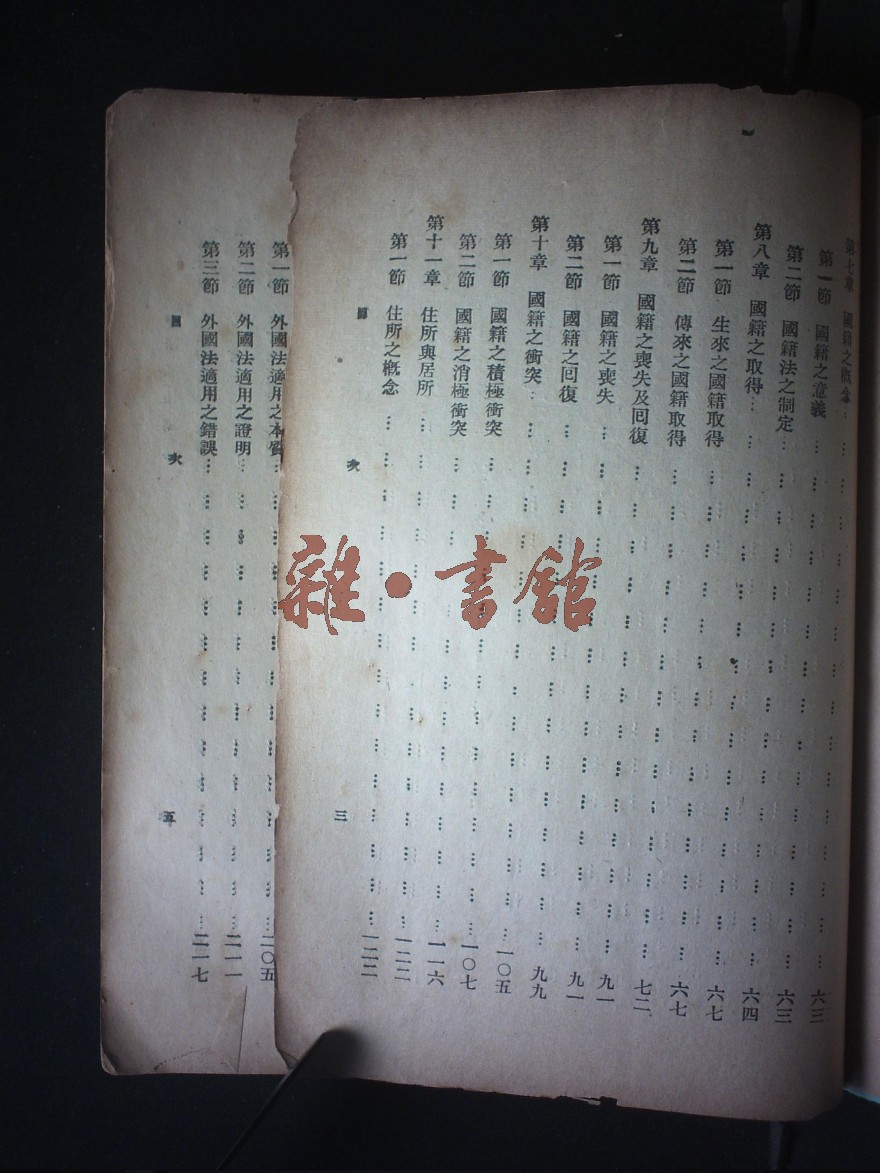 第七章 國籍之概念……六三
第一節 國籍之意義……六三
第二節 國籍法之制定……六四
第八章 國籍之取得……六七
第一節 生來之國籍取得……六七
第二節 傳來之國籍取得……七二
第九章 國籍之喪失及回復……九一
第一節 國籍之喪失……九一
第二節 國籍之回復……九九
第十章 國籍之衝突……一〇五
第一節 國籍之積極衝突……一〇七
第二節 國籍之消極衝突……一一六
第十一章 住所與居所……一二二
第一節 住所之概念……一二二
目 次 三
第一節 外國法適用之本質……二〇五
第二節 外國法適用之證明……二一一
第三節 外國法適用之錯誤……二一七
目 次 五
雜·書館